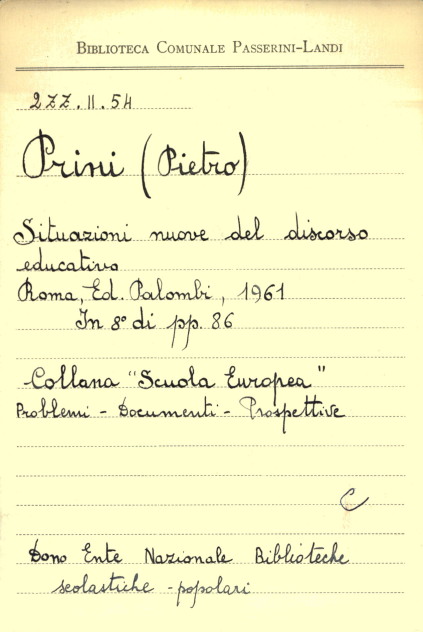 BIBLIOTECA COMUNALE PASSERINI-LANDI
2ZZ.II.54
Prini (Pietro)
Situazioni nuove del discorso
educativo
Roma, Ed. Palombi, 1961
In 8° di pp. 86
Collana "Scuola Europea"
Problemi - Documenti - Prospettive
C
Dono Ente Nazionale Biblioteche
scolastiche - popolari